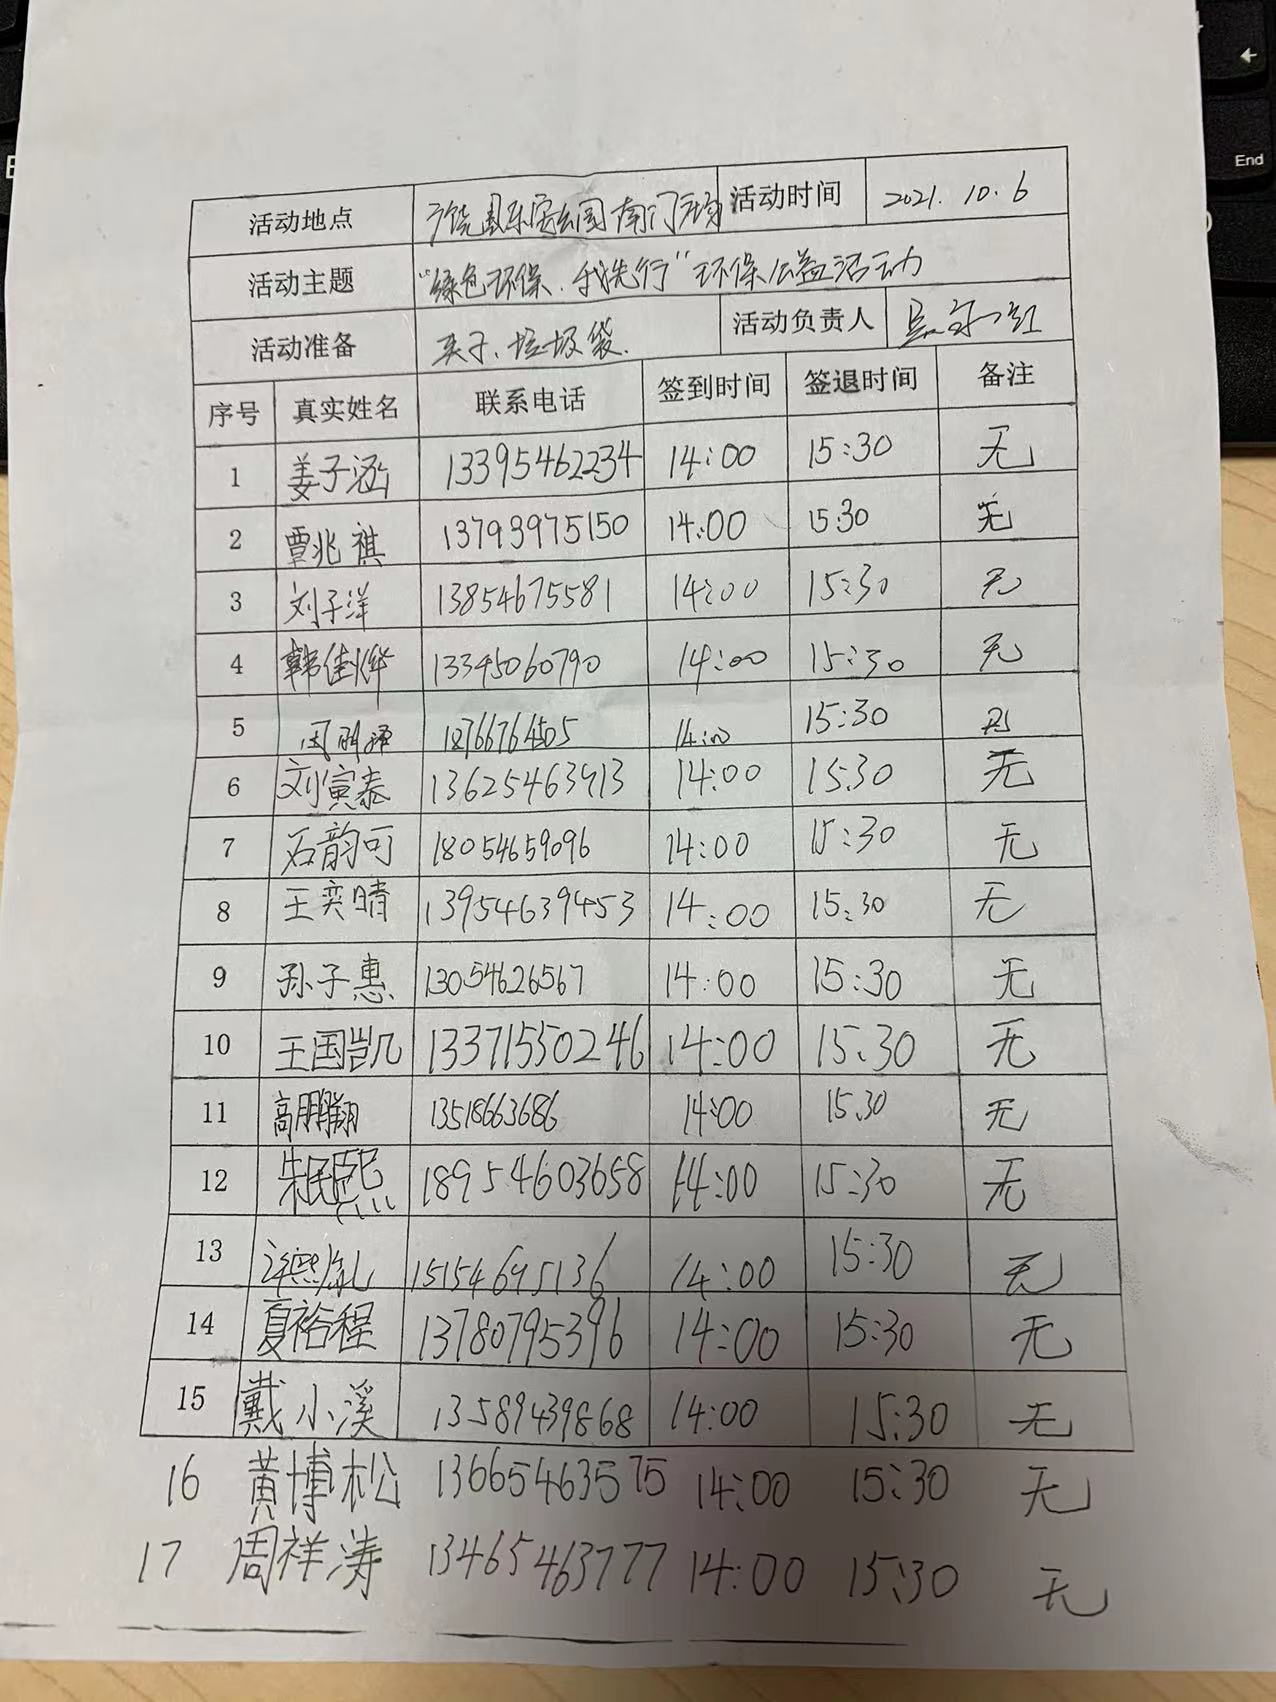 活动地点 广饶县乐安公园南门广场 活动时间 2021.10.6
活动主题 “绿色环保.我先行”环保公益活动
活动准备 夹子、垃圾袋. 活动负责人
序号 真实姓名 联系电话 签到时间 签退时间 备注
1 姜子涵 13395462234 14:00 15:30 无
2 覃兆祺 13793975150 14:00 15:30 无
3 刘子洋 13854675581 14:00 15:30 无
4 韩佳烨 13345060790 14:00 15:30 无
5 18766764505 14:00 15:30 无
6 刘寅泰 13625463913 14:00 15:30 无
7 石韵可 18054659096 14:00 15:30 无
8 王奕晴 13954639453 14:00 15:30 无
9 孙子惠 13054626567 14:00 15:30 无
10 王国凯 13371550246 14:00 15:30 无
11 高鹏翔 13518663686 14:00 15:30 无
12 朱民熙 18954603658 14:00 15:30 无
13 15154695136 14:00 15:30 无
14 夏裕程 13780795396 14:00 15:30 无
15 戴小溪 13589439868 14:00 15:30 无
16 黄博松 13665463575 14:00 15:30 无
17 周祥涛 13465463777 14:00 15:30 无
End